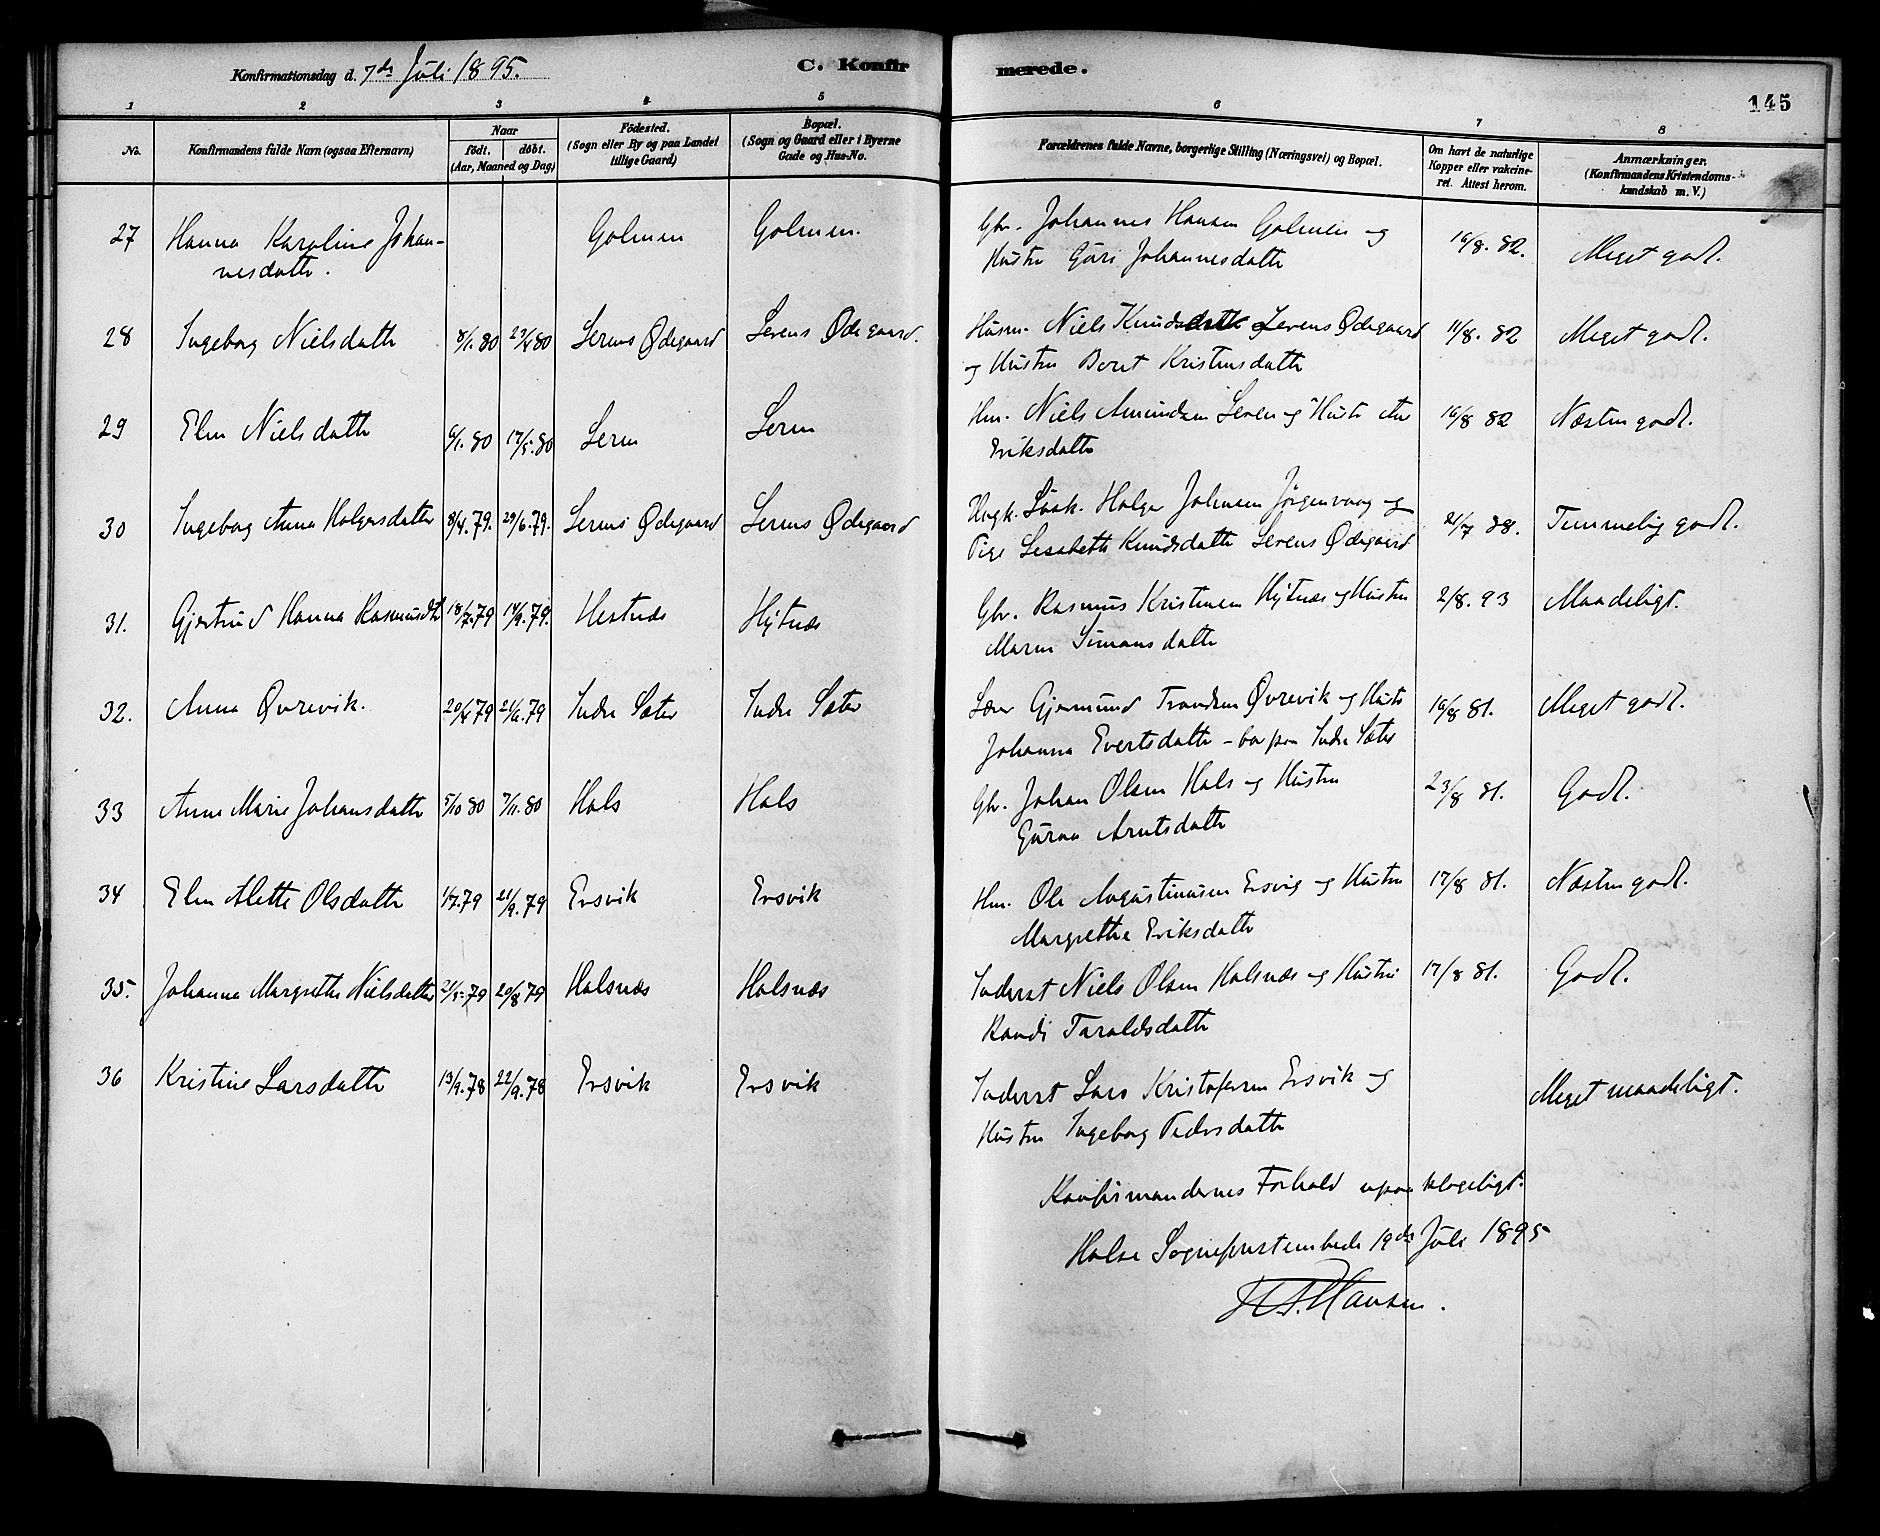 Konfirmationsdag d. 7de Juli 1895.
C. Konfirmerede.
145
1 2 3 4 5 6 7 8
No.
Konfirmandens fulde Navn (ogsaa Efternavn)
Naar
födt. döbt.
(Aar, Maaned og Dag)
Födested.
(Sogn eller By og paa Landet
tillige Gaard)
Bopæl.
(Sogn og Gaard eller i Byerne
Gade og Hus-No.
Forældrenes fulde Navne, borgerlige Stilling (Næringsvei) og Bopæl.
Om havt de naturlige
Kopper eller vakcine-
ret. Attest herom.
Anmærkninger.
(Konfirmandens Kristendoms-
kundskab m. V.)
27 Hanna Karoline Johan- Golmen Golmen. Gbr. Johannes Hansen Golmen og 16/8. 82. Meget godt.
nesdatter. Hustru Guri Johannesdatter
28 Ingeborg Nielsdatter 8/1. 80 23/5 80 Lerens Ødegaard Lerens Ødegaard. Husm. Niels Knuds Lerens Ødegaard 11/8. 82 Meget godt.
og Hustru Beret Kristensdatter
29 Elen Nielsdatter 6/1. 80 17/5. 80 Leren Leren Hm. Niels Amundsen Leren og Hustr. Ane 16/8 82 Næsten godt.
Eriksdatter
30 Ingeborg Anna Holgersdatter 8/4. 79. 29/6. 79. Lerens Ødegaard Lerens Ødegaard Ungk. Holger Johnsen Jörgenvaag og 21/7 88. Temmelig godt.
Pige Lisabeth Knudsdatter Lerens Ødegaard
31. Gjertrud Hanna Rasmusdtr 18/7. 79 14/9. 79. Hestnæs Hytnæs Gbr. Rasmus Kristensen Hytnæs og Hustru 2/8. 93 Maadeligt.
Maren Simonsdatter
32. Anna Øvrevik. 20/4 79 21/6. 79 Indre Sæter Indre Sæter Lærer Gjermund Trondsen Øvrevik og Hustr. 16/8 81. Meget godt.
Johanna Evertsdatter – bor paa Indre Sæter
33 Anne Marie Johansdatter 5/10 80 7/11. 80 Hals Hals Gbr. Johan Olsen Hals og Hustru 23/8 81. Godt.
Guroa Arntsdatter
34 Elen Alette Olsdatter 1/7. 79 21/9. 79 Ersvik Ersvik Hm. Ole Augustinusen Ersvig og Hustru 17/8 81. Næsten godt.
Margrethe Eriksdatter
35. Johanna Margrethe Nielsdatter 21/5. 79 20/8 79 Halsnæs Halsnæs Inderst Niels Olsen Halsnæs og Hustru 17/8 81. Godt.
Randi Taraldsdatter
36 Kristine Larsdatter 13/9. 78 22/9. 78 Ersvik Ersvik Inderst Lars Kristofersen Ersvik og Meget maadeligt.
Hustru Ingeborg Pedersdatter
Konfirmandernes Forhold upaaklageligt.
Halse Sogneprestembede 19de Juli 1895
Hansen.